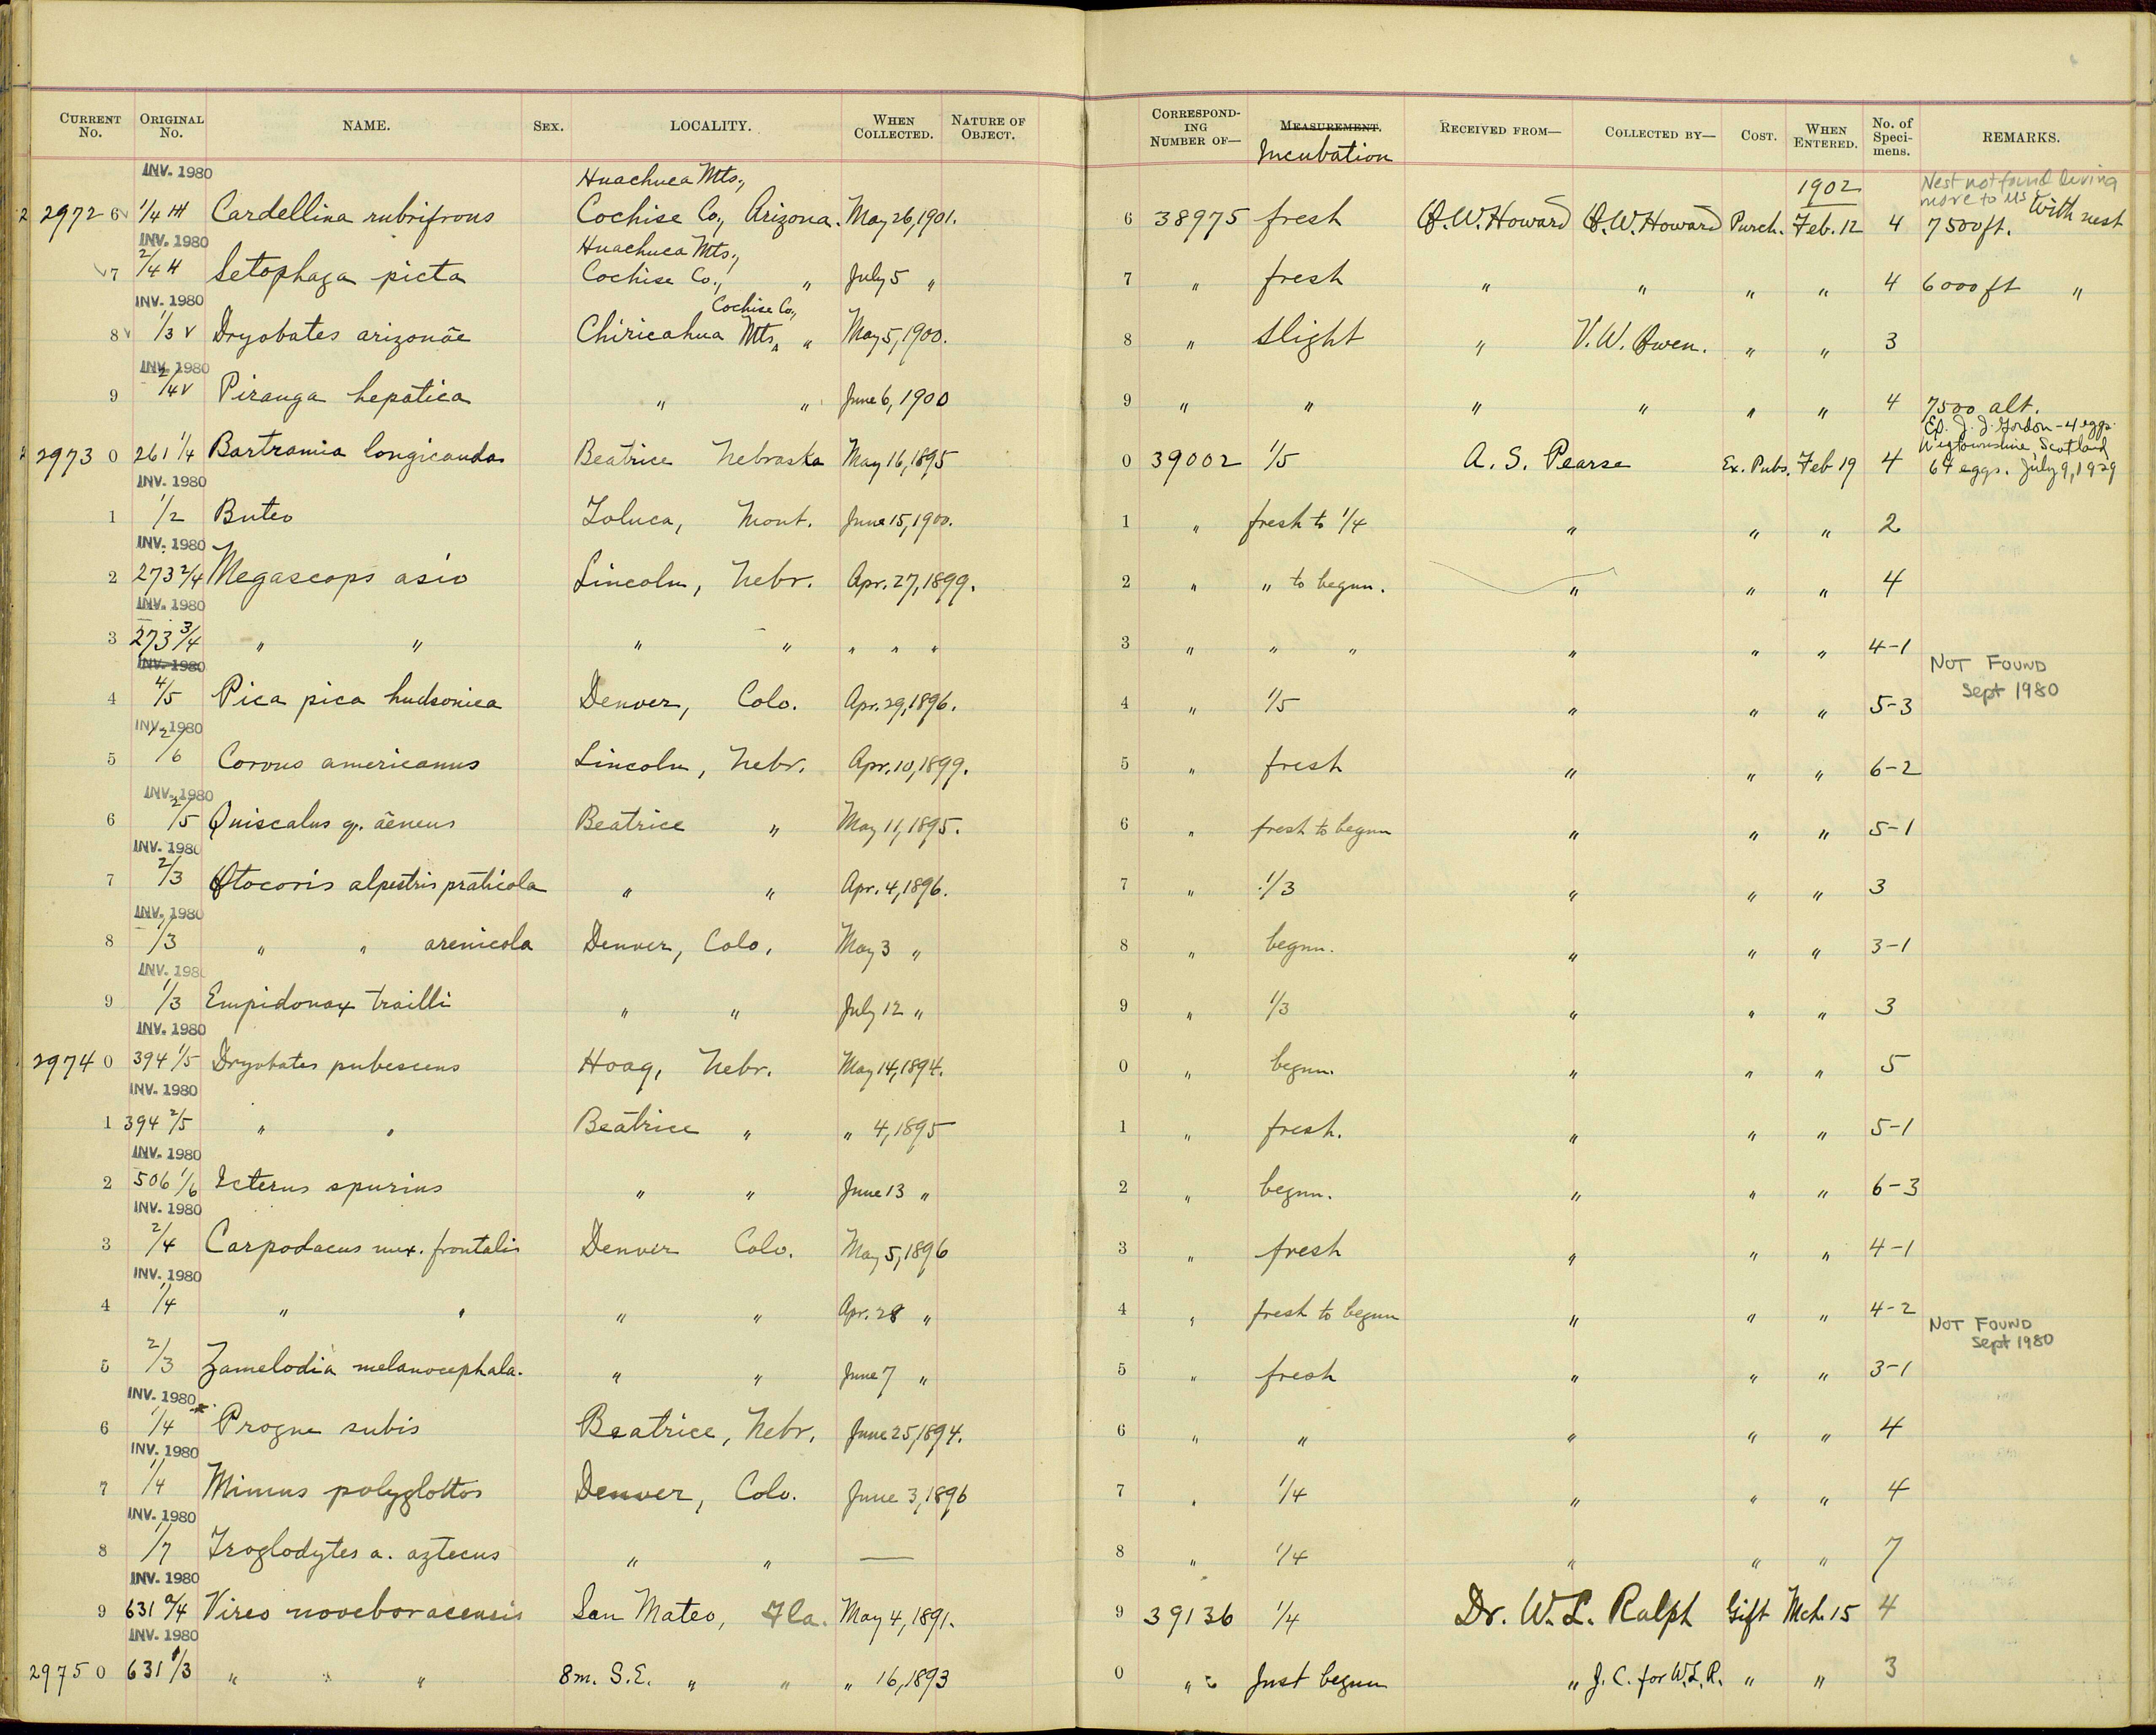 CURRENT No. ORIGINAL No. NAME. SEX. LOCALITY. WHEN COLLECTED. NATURE OF OBJECT. CORRESPONDING NUMBER OF— MEASUREMENT. Incubation RECEIVED FROM— COLLECTED BY— COST. WHEN ENTERED. No. of Specimens. REMARKS.
INV. 1980 Huachuca Mts., 1902 Nest not found during move to MS
2972 6 1/4 H Cardellina rubrifrons Cochise Co., Arizona. May 26, 1901. 6 38975 fresh O.W. Howard O.W. Howard Purch. Feb. 12 4 7500 ft. With nest
INV. 1980 Huachuca Mts.,
7 2/4 H Setophaga picta Cochise Co., " July 5 " 7 " fresh " " " " 4 6000 ft "
INV. 1980 Cochise Co.,
8 1/3 V Dryobates arizonae Chiricahua Mts. " May 5, 1900. 8 " Slight " V. W. Owen. " " 3
INV. 1980
9 2/4 V Piranga hepatica " " June 6, 1900 9 " " " " " " 4 7500 alt.
Ex. J. J. Gordon - 4 eggs.
Wigtownshire, Scotland
2973 0 261 1/4 Bartramia longicauda Beatrice Nebraska May 16, 1895 0 39002 1/5 A. S. Pearse Ex. Pubs. Feb 19 4 64 eggs. July 9, 1929
INV. 1980
1 1/2 Buteo Toluca, Mont. June 15, 1900. 1 " fresh to 1/4 " " " 2
INV. 1980
2 273 2/4 Megascops asio Lincoln, Nebr. Apr. 27, 1899. 2 " " to begun. " " " 4
INV. 1980
3 273 3/4 " " " " " " " 3 " " " " " " 4-1
INV. 1980 NOT FOUND
4 4/5 Pica pica hudsonica Denver, Colo. Apr. 29, 1896. 4 " 1/5 " " " 5-3 Sept 1980
INV. 1980
5 2/6 Corvus americanus Lincoln, Nebr. Apr. 10, 1899. 5 " fresh " " " 6-2
INV. 1980
6 2/5 Quiscalus q. aëneus Beatrice " May 11, 1895. 6 " fresh to begun " " " 5-1
INV. 1980
7 2/3 Otocoris alpestris praticola " " Apr. 4, 1896. 7 " 1/3 " " " 3
INV. 1980
8 1/3 " " arenicola Denver, Colo. May 3 " 8 " begun. " " " 3-1
INV. 198
9 1/3 Empidonax trailli " " July 12 " 9 " 1/3 " " " 3
INV. 1980
2974 0 394 1/5 Dryobates pubescens Hoag, Nebr. May 14, 1894. 0 " begun. " " " 5
INV. 1980
1 394 2/5 " " Beatrice " " 4, 1895 1 " fresh. " " " 5-1
INV. 1980
2 506 1/6 Icterus spurius " " June 13 " 2 " begun. " " " 6-3
INV. 1980
3 2/4 Carpodacus mex. frontalis Denver Colo. May 5, 1896 3 " fresh " " " 4-1
INV. 1980
4 1/4 " " " " Apr. 28 " 4 " fresh to begun " " " 4-2
NOT FOUND
5 2/3 Zamelodia melanocephala. " " June 7 " 5 " fresh " " " 3-1 Sept 1980
INV. 1980
6 1/4 Progne subis Beatrice, Nebr. June 25, 1894. 6 " " " " " 4
INV. 1980
7 1/4 Mimus polyglottos Denver, Colo. June 3, 1896 7 " 1/4 " " " 4
INV. 1980
8 1/7 Troglodytes a. aztecus " " — 8 " 1/4 " " " 7
INV. 1980
9 631 2/4 Vireo noveboracensis San Mateo, Fla. May 4, 1891. 9 39136 1/4 Dr. W. L. Ralph Gift Mch. 15 4
INV. 1980
2975 0 631 1/3 " " " 8 m. S.E. " " " 16, 1893 0 " Just begun " J. C. for W.L.R. " " 3